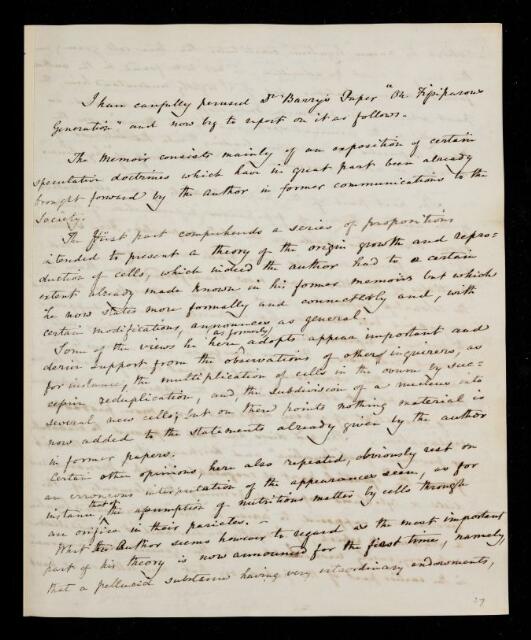 I have carefully perused Dr Barry's Paper "On Fissiparous
Generation" and now beg to report on it as follows.
The memoir consists mainly of an exposition of certain
speculative doctrines which have in great part been already
brought forward by the author in former communications to the
Society.
The first part comprehends a series of propositions
intended to present a theory of the origin growth and repro-
duction of cells, which indeed the author had to a certain
extent already made known in his former memoirs but which
he now states more formally and connectedly and, with
certain modifications, announces as general.
as formerly
Some of the views he here adopts appear important and
derive support from the observations of other inquirers, as
for instance, the multiplication of cells in the ovum by suc-
cessive reduplication, and the subdivision of a nucleus into
several new cells; but on these points nothing material is
now added to the statements already given by the author
in former papers.
Certain other opinions, here also repeated, obviously rest on
an erroneous interpretation of the appearances seen, as for
instance that of the assumption of nutritious matter by cells through
an orifice in their parietes. –
What the Author seems however to regard as the most important
part of his theory is now announced for the first time, namely,
that a pellucid substance having very extraordinary endowments,
27